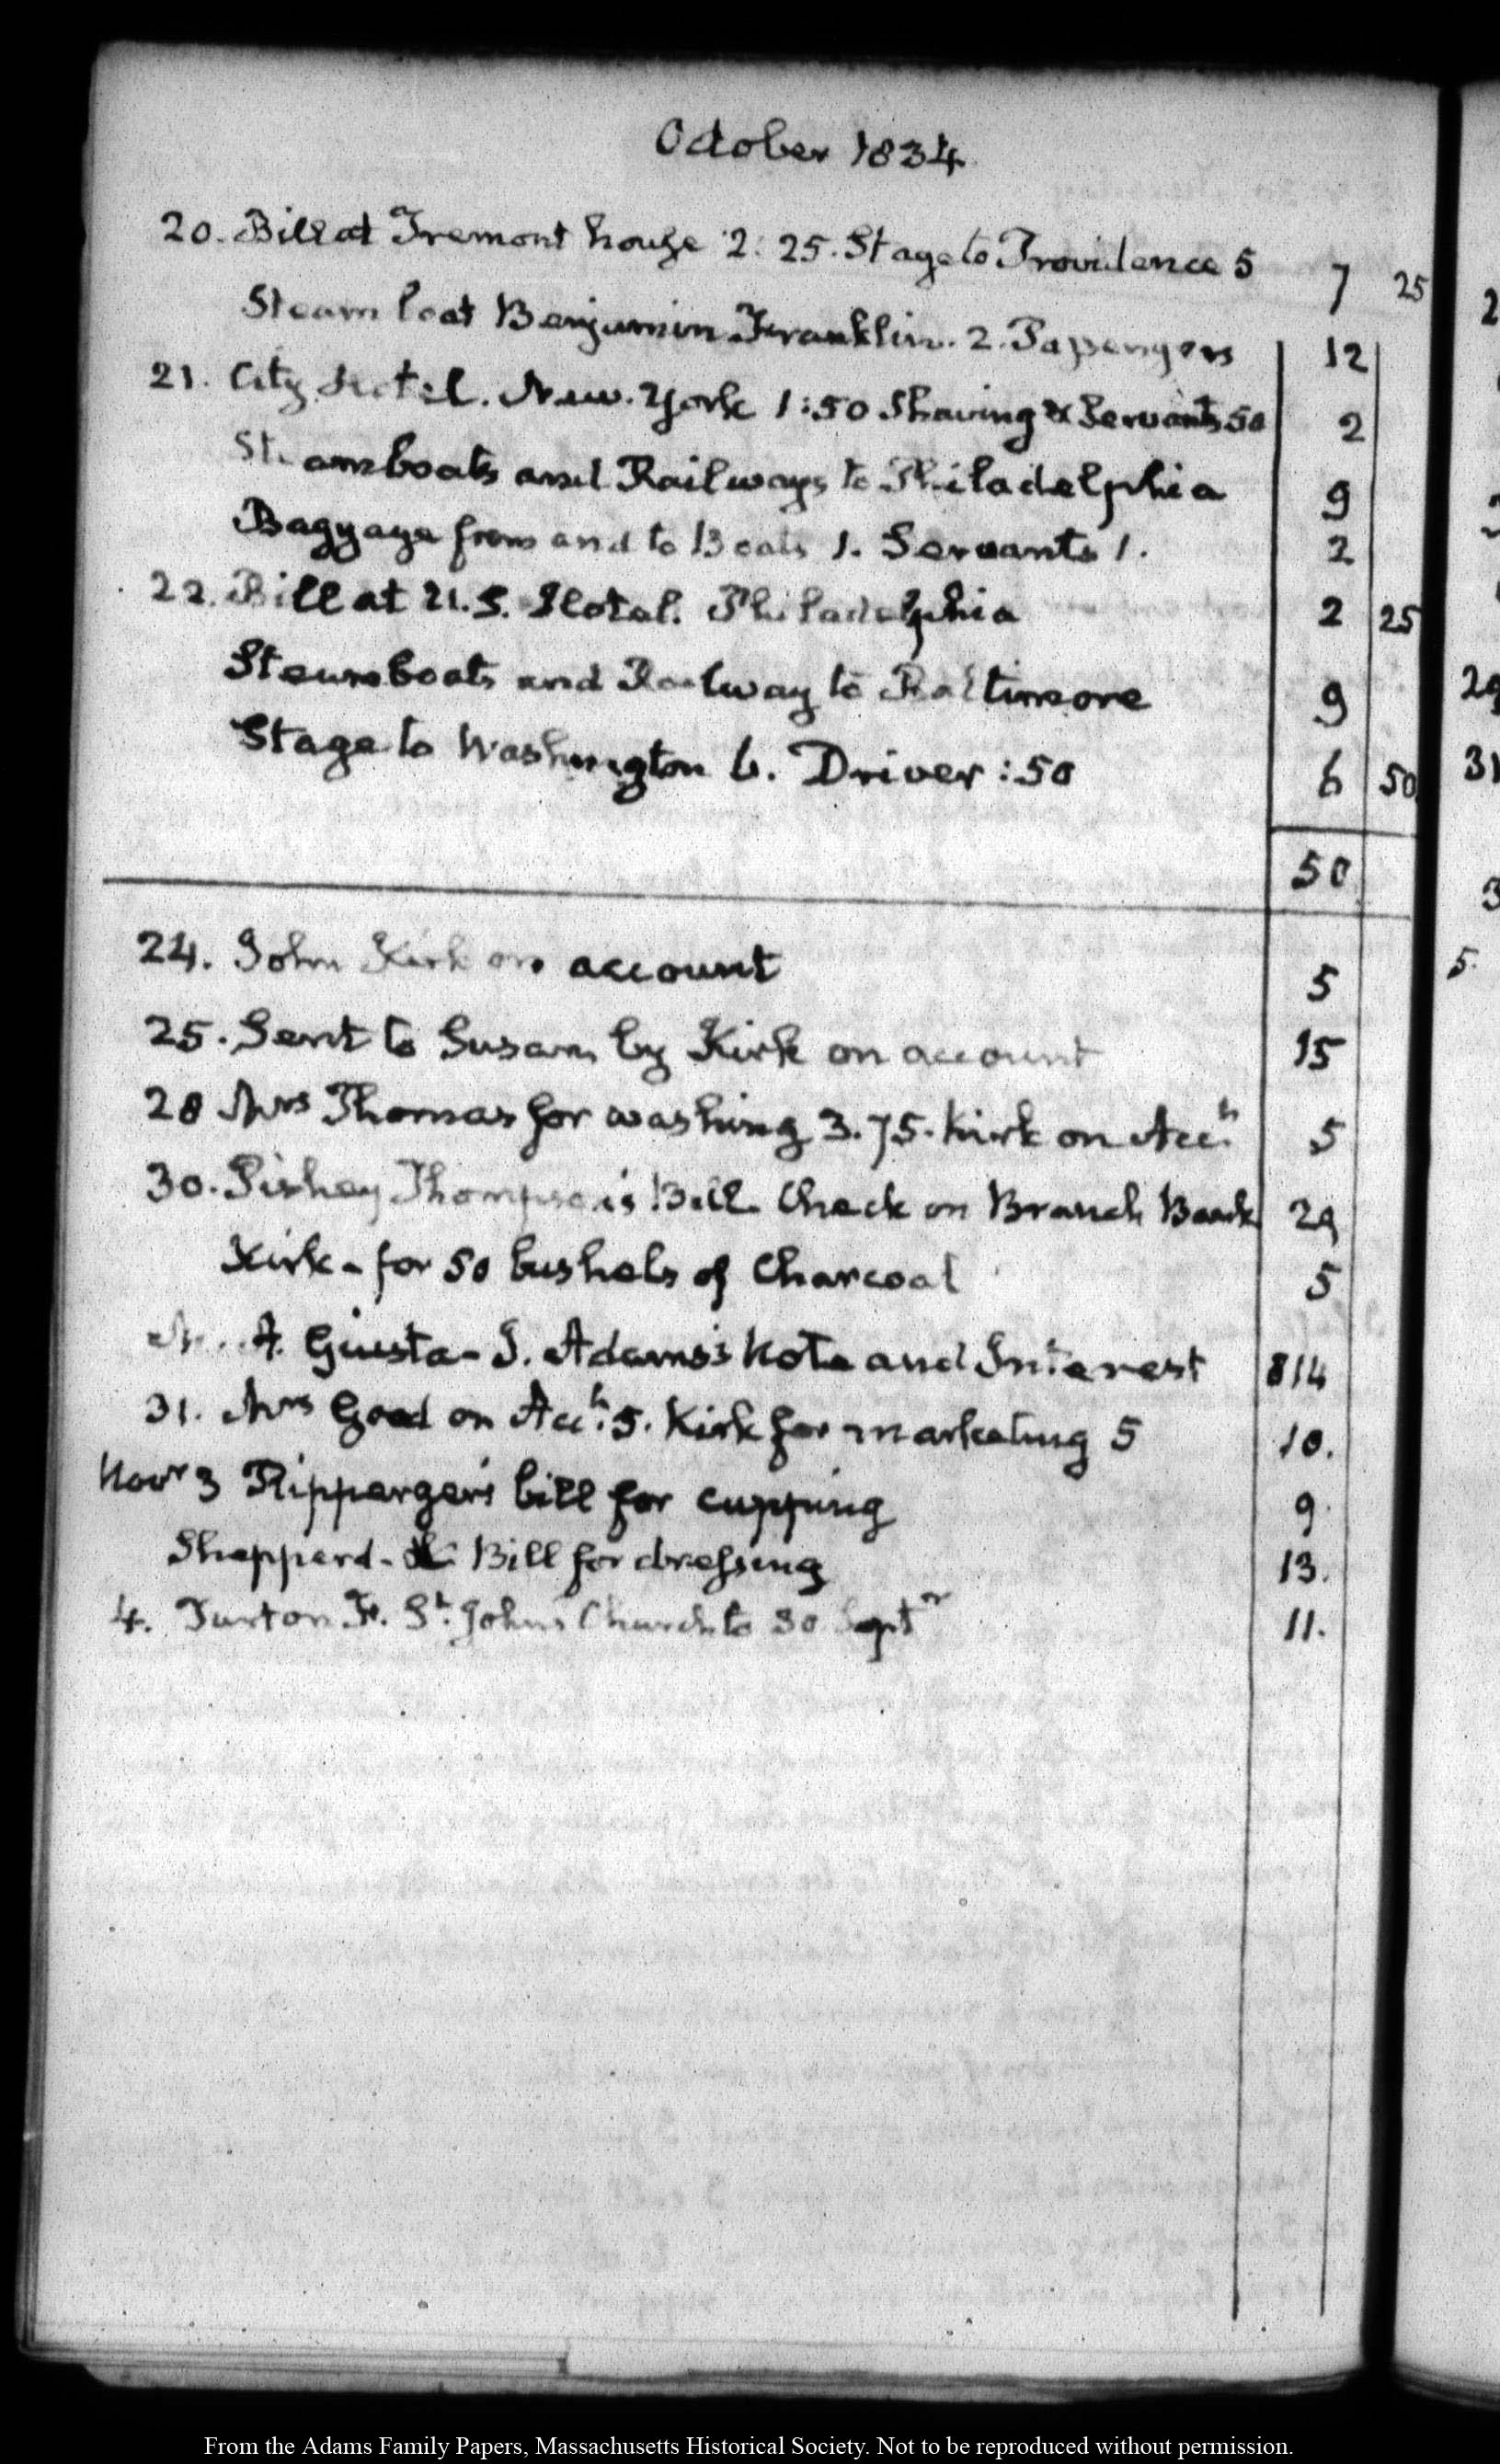 October 1834.
20. Bill at Tremont house 2:25. Stage to Providence 5 7 25
Steam boat Benjamin Franklin. 2. Passengers 12
21. City Hotel. New-York 1:50 Shaving & Servants 50 2
Steamboats and Railways to Philadelphia 9
Baggage from and to Boats 1. Servants 1. 2
22. Bill at U.S. Hotel. Philadelphia 2 25
Steamboats and Railway to Baltimore 9
Stage to Washington 6. Driver :50 6 50
50
24. John Kirk on account 5
25. Sent to Susan by Kirk on account 15
28 Mrs Thomas for washing 3.75. Kirk on Acct. 5
30. Pishey Thompson's Bill. Check on Branch Bank 29
Kirk - for 50 bushels of Charcoal 5
A. Giusta - J. Adams's Note and Interest 814
31. Mrs Good on Acct. 5. Kirk for marketing 5 10.
Novr 3 Ripperger's bill for cupping 9.
Sheppard - Bill for dressing 13.
4. Turton Fr. St. John's Church to 30 Septr 11.
2
29
31
3
5.
From the Adams Family Papers, Massachusetts Historical Society. Not to be reproduced without permission.